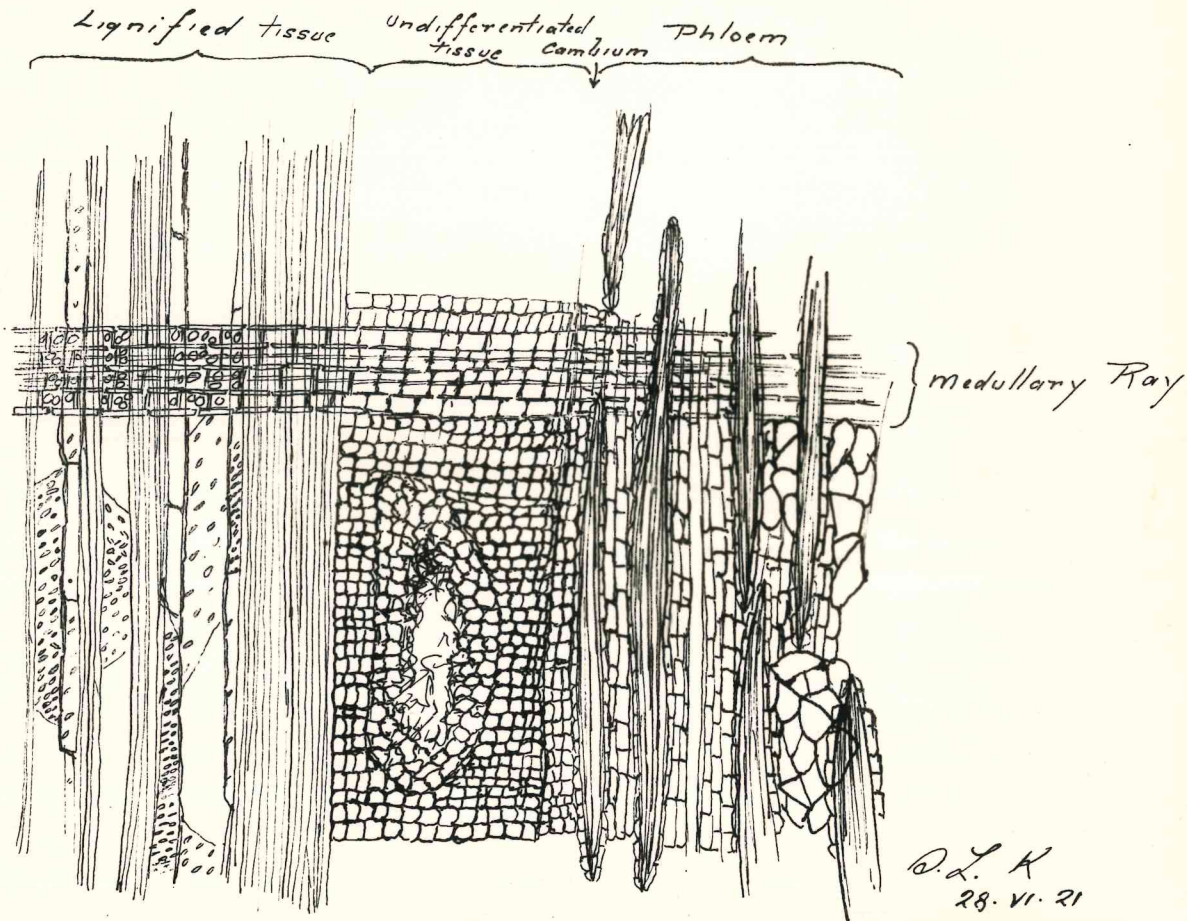 Lignified tissue
Undifferentiated
tissue
Cambium
Phloem
Medullary Ray
D. L. K
28. VI. 21